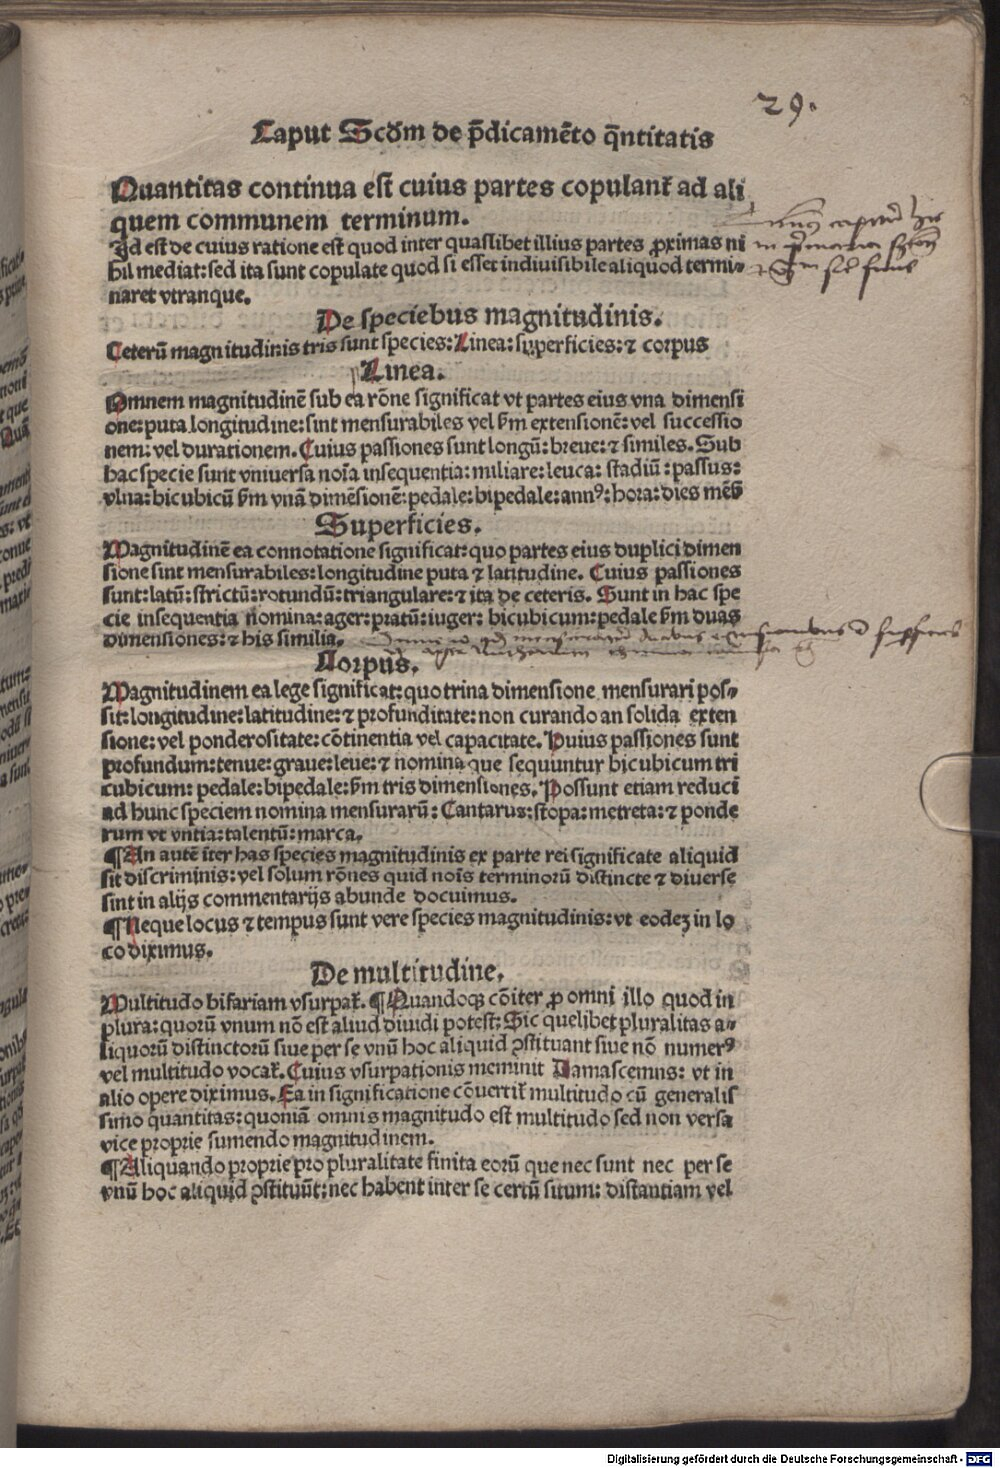 29.
Caput Scdm de p̄dicamēto q̄ntitatis
Quantitas continua est cuius partes copulant̄ ad ali
quem communem terminum.
Id est de cuius ratione est quod inter quaslibet illius partes ꝓximas ni
hil mediat: sed ita sunt copulate quod si esset indiuisibile aliquod termi-
naret vtranque.
De speciebus magnitudinis.
Ceterū magnitudinis tris sunt species: Linea: superficies: ⁊ corpus
Linea.
Omnem magnitudinē sub ea rōne significat vt partes eius vna dimensi
one: puta longitudine: sint mensurabiles vel s̄m extensionē: vel successio
nem: vel durationem. Cuius passiones sunt longū: breue: ⁊ similes. Sub
hac specie sunt vniuersa noīa insequentia: miliare: leuca: stadiū: passus:
vlna: bicubicū s̄m vnā dimēsionē: pedale: bipedale: annꝰ: hora: dies mēs̄
Superficies.
Magnitudinē ea connotatione significat: quo partes eius duplici dimen
sione sint mensurabiles: longitudine puta ⁊ latitudine. Cuius passiones
sunt: latū: strictū: rotundū: triangulare: ⁊ ita de ceteris. Sunt in hac spe
cie insequentia nomina: ager: pratū: iuger: bicubicum: pedale s̄m duas
dimensiones: ⁊ his similia.
Corpus.
Magnitudinem ea lege significat: quo trina dimensione mensurari pos-
sit: longitudine: latitudine: ⁊ profunditate: non curando an solida exten
sione: vel ponderositate: cōtinentia vel capacitate. Huius passiones sunt
profundum: tenue: graue: leue: ⁊ nomina que sequuntur bicubicum tri
cubicum: pedale: bipedale: s̄m tris dimensiones. Possunt etiam reduci
ad hunc speciem nomina mensurarū: Cantarus: stopa: metreta: ⁊ ponde
rum vt vntia: talentū: marca.
¶ An autē īter has species magnitudinis ex parte rei significate aliquid
sit discriminis: vel solum rōnes quid noīs terminorū distincte ⁊ diuerse
sint in alijs commentarijs abunde docuimus.
¶ Neque locus ⁊ tempus sunt vere species magnitudinis: vt eodeꝫ in lo
co diximus.
De multitudine.
Multitudo bifariam vsurpat̄. ¶ Quandoqꝫ cōiter ꝓ omni illo quod in
plura: quorū vnum nō est aliud diuidi potest: Sic quelibet pluralitas a-
liquorū distinctorū siue per se vnū hoc aliquid ꝯstituant siue nō numerꝰ
vel multitudo vocat̄. Cuius vsurpationis meminit Damascenus: vt in
alio opere diximus. Ea in significatione cōuertit̄ multitudo cū generalis
simo quantitas: quoniā omnis magnitudo est multitudo sed non versa
vice proprie sumendo magnitudinem.
¶ Aliquando proprie pro pluralitate finita eorū que nec sunt nec per se
vnū hoc aliquid ꝯstituūt: nec habent inter se certū situm: distantiam vel
Digitalisierung gefördert durch die Deutsche Forschungsgemeinschaft - DFG